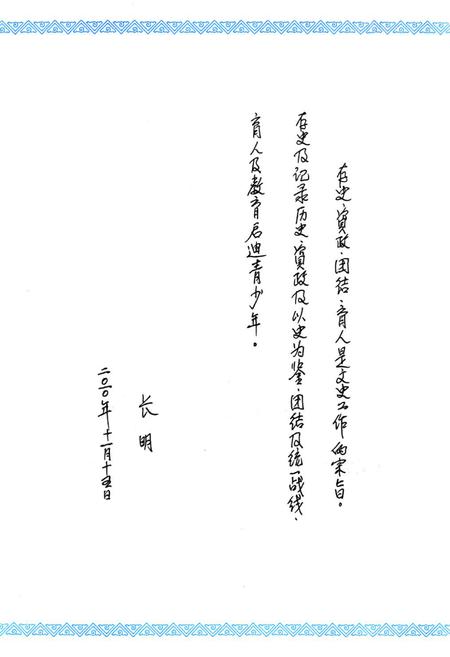 存史、资政、团结、育人是文史工作的宗旨。
存史及记录历史，资政及以史为鉴，团结及统一战线，
育人及教育启迪青少年。
长明
二〇〇年十一月十五日